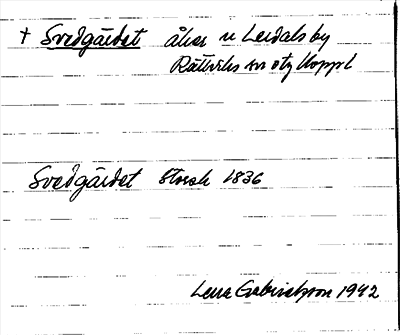 † Svedgärdet åker u Lerdals by
Rättviks sn Koppl
Svedgärdet Storsk 1836
Lena Gabrielsson 1942